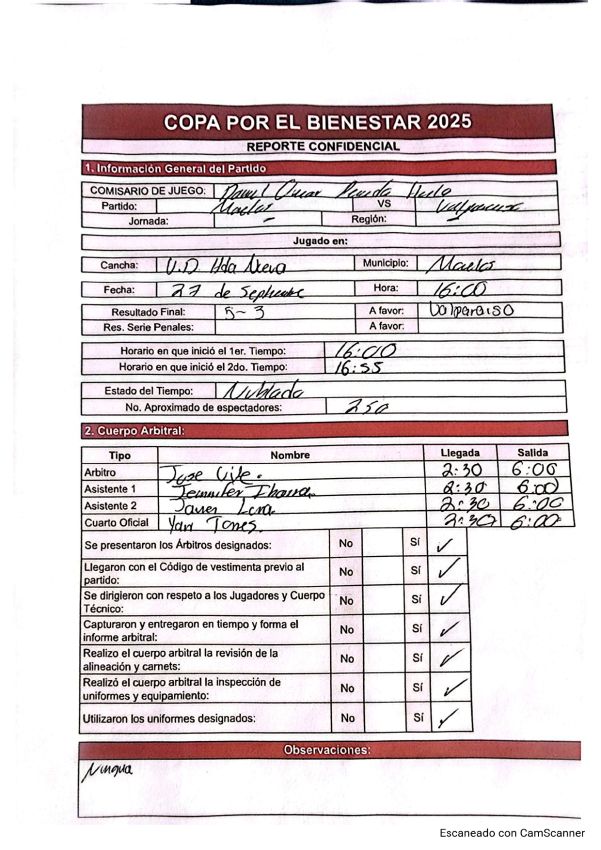 COPA POR EL BIENESTAR 2025
REPORTE CONFIDENCIAL
1. Información General del Partido
COMISARIO DE JUEGO: Omar
Partido: Morelos VS Valparaiso
Jornada: – Región: –
Jugado en:
Cancha: U.D Hda Nueva Municipio: Morelos
Fecha: 27 de Septiembre Hora: 16:00
Resultado Final: 5-3 A favor: Valparaiso
Res. Serie Penales: A favor:
Horario en que inició el 1er. Tiempo: 16:00
Horario en que inició el 2do. Tiempo: 16:55
Estado del Tiempo: Nublado
No. Aproximado de espectadores: 250
2. Cuerpo Arbitral:
Tipo Nombre Llegada Salida
Arbitro Jose 2:30 6:00
Asistente 1 Jennifer Ibarra 2:30 6:00
Asistente 2 Javier Lera 2:30 6:00
Cuarto Oficial Yair Torres 2:30 6:00
Se presentaron los Árbitros designados: No Sí ✓
Llegaron con el Código de vestimenta previo al
partido: No Sí ✓
Se dirigieron con respeto a los Jugadores y Cuerpo
Técnico: No Sí ✓
Capturaron y entregaron en tiempo y forma el
informe arbitral: No Sí ✓
Realizo el cuerpo arbitral la revisión de la
alineación y carnets: No Sí ✓
Realizó el cuerpo arbitral la inspección de
uniformes y equipamiento: No Sí ✓
Utilizaron los uniformes designados: No Sí ✓
Observaciones:
Ninguna
Escaneado con CamScanner